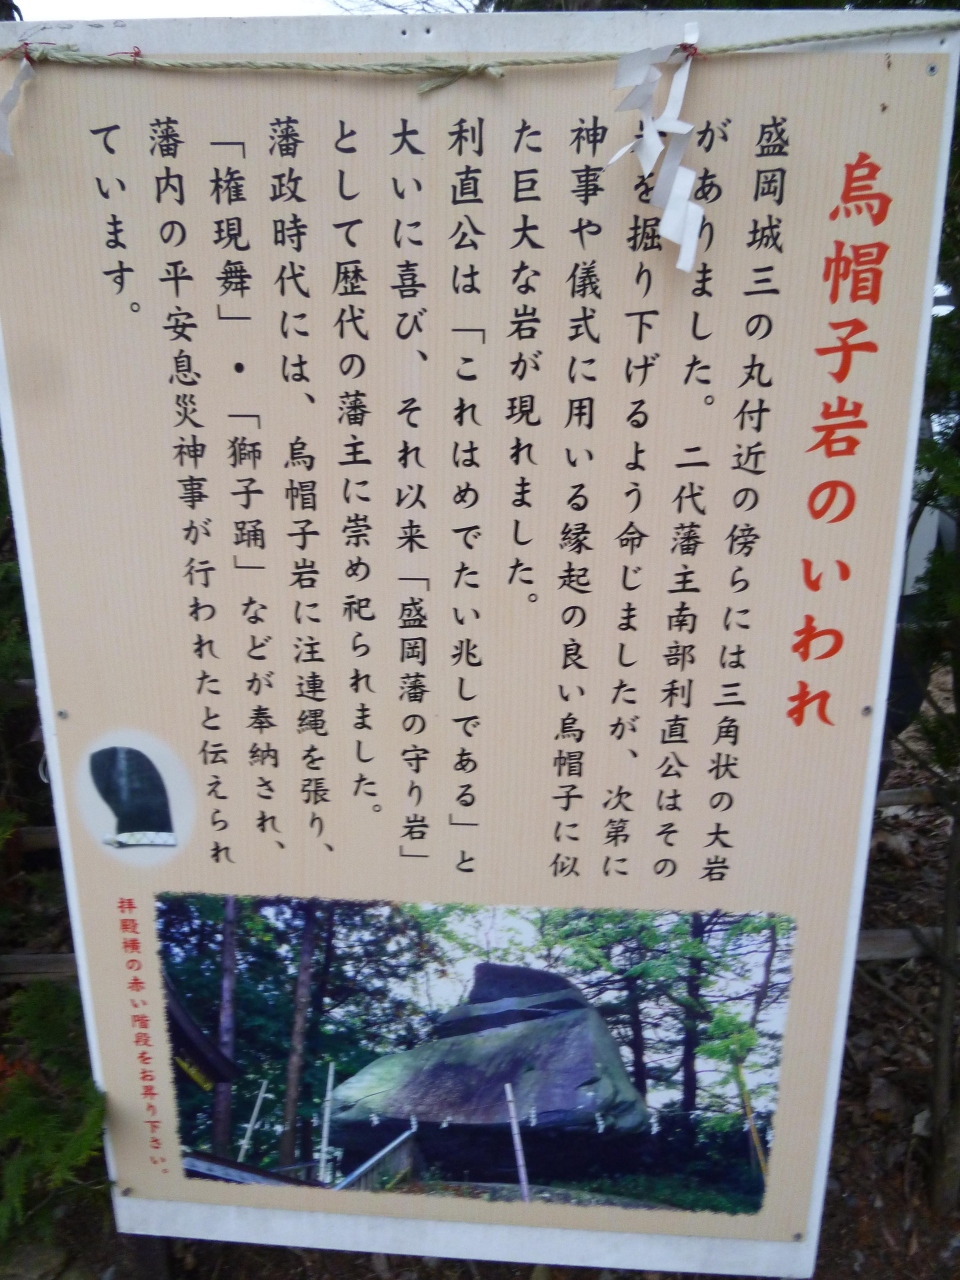 烏帽子岩のいわれ
盛岡城三の丸付近の傍らには三角状の大岩
がありました。二代藩主南部利直公はその
を掘り下げるよう命じましたが、次第に
神事や儀式に用いる縁起の良い烏帽子に似
た巨大な岩が現れました。
利直公は「これはめでたい兆しである」と
大いに喜び、それ以来「盛岡藩の守り岩」
として歴代の藩主に崇め祀られました。
藩政時代には、烏帽子岩に注連縄を張り、
「権現舞」・「獅子踊」などが奉納され、
藩内の平安息災神事が行われたと伝えられ
ています。
拝殿横の赤い階段をお昇り下さい。